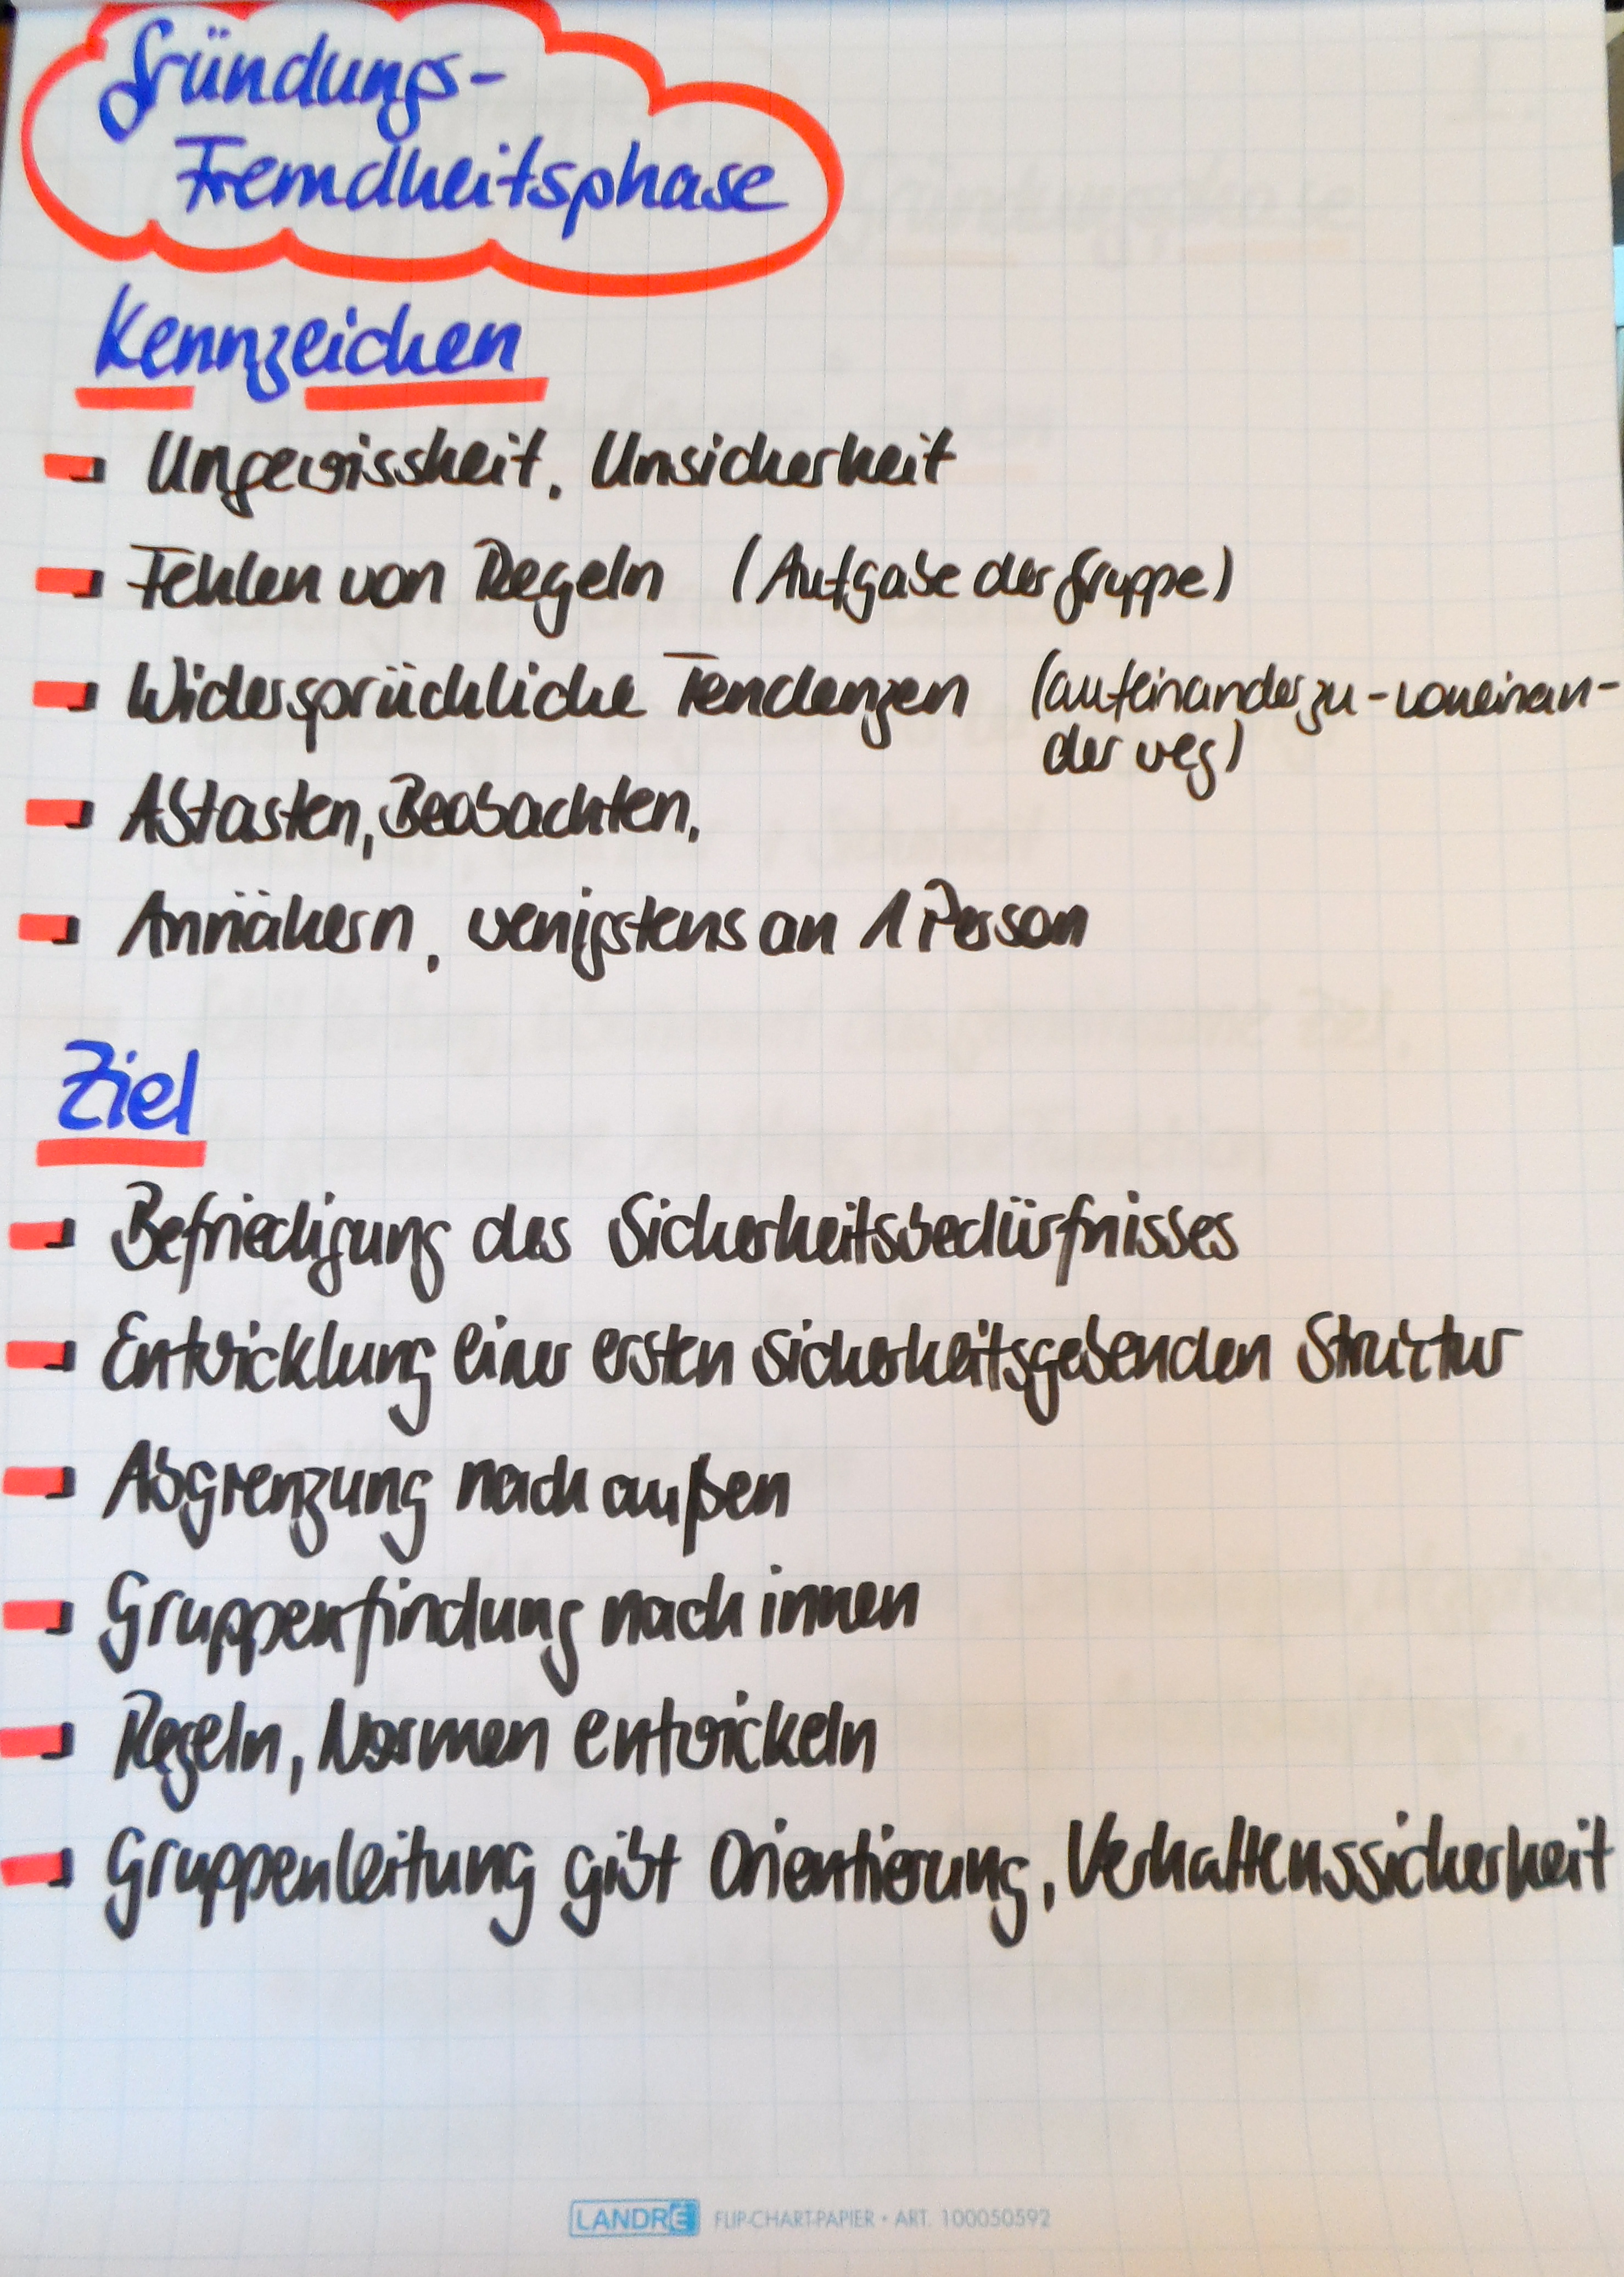 Gründungs-
Fremdheitsphase
Kennzeichen
Ungewissheit, Unsicherheit
Fehlen von Regeln (Aufgabe der Gruppe)
Widersprüchliche Tendenzen (aufeinander zu - voneinan-
der weg)
Abtasten, Beobachten,
Annähern, wenigstens an 1 Person
Ziel
Befriedigung des Sicherheitsbedürfnisses
Entwicklung einer ersten sicherheitsgebenden Struktur
Abgrenzung nach außen
Gruppenfindung nach innen
Regeln, Normen entwickeln
Gruppenleitung gibt Orientierung, Verhaltenssicherheit
LANDRÉ FLIP-CHART-PAPIER • ART. 100050592